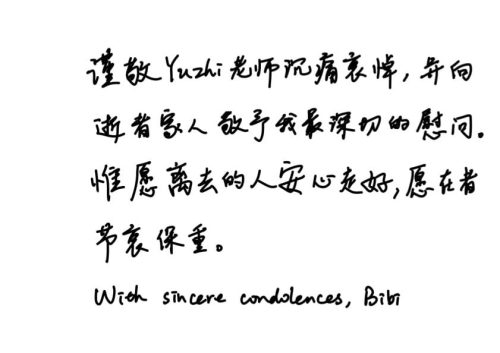 谨敬Yuzhi老师沉痛哀悼，并向
逝者家人敬予我最深切的慰问。
惟愿离去的人安心走好，愿在者
节哀保重。
With sincere condolences, Bibi